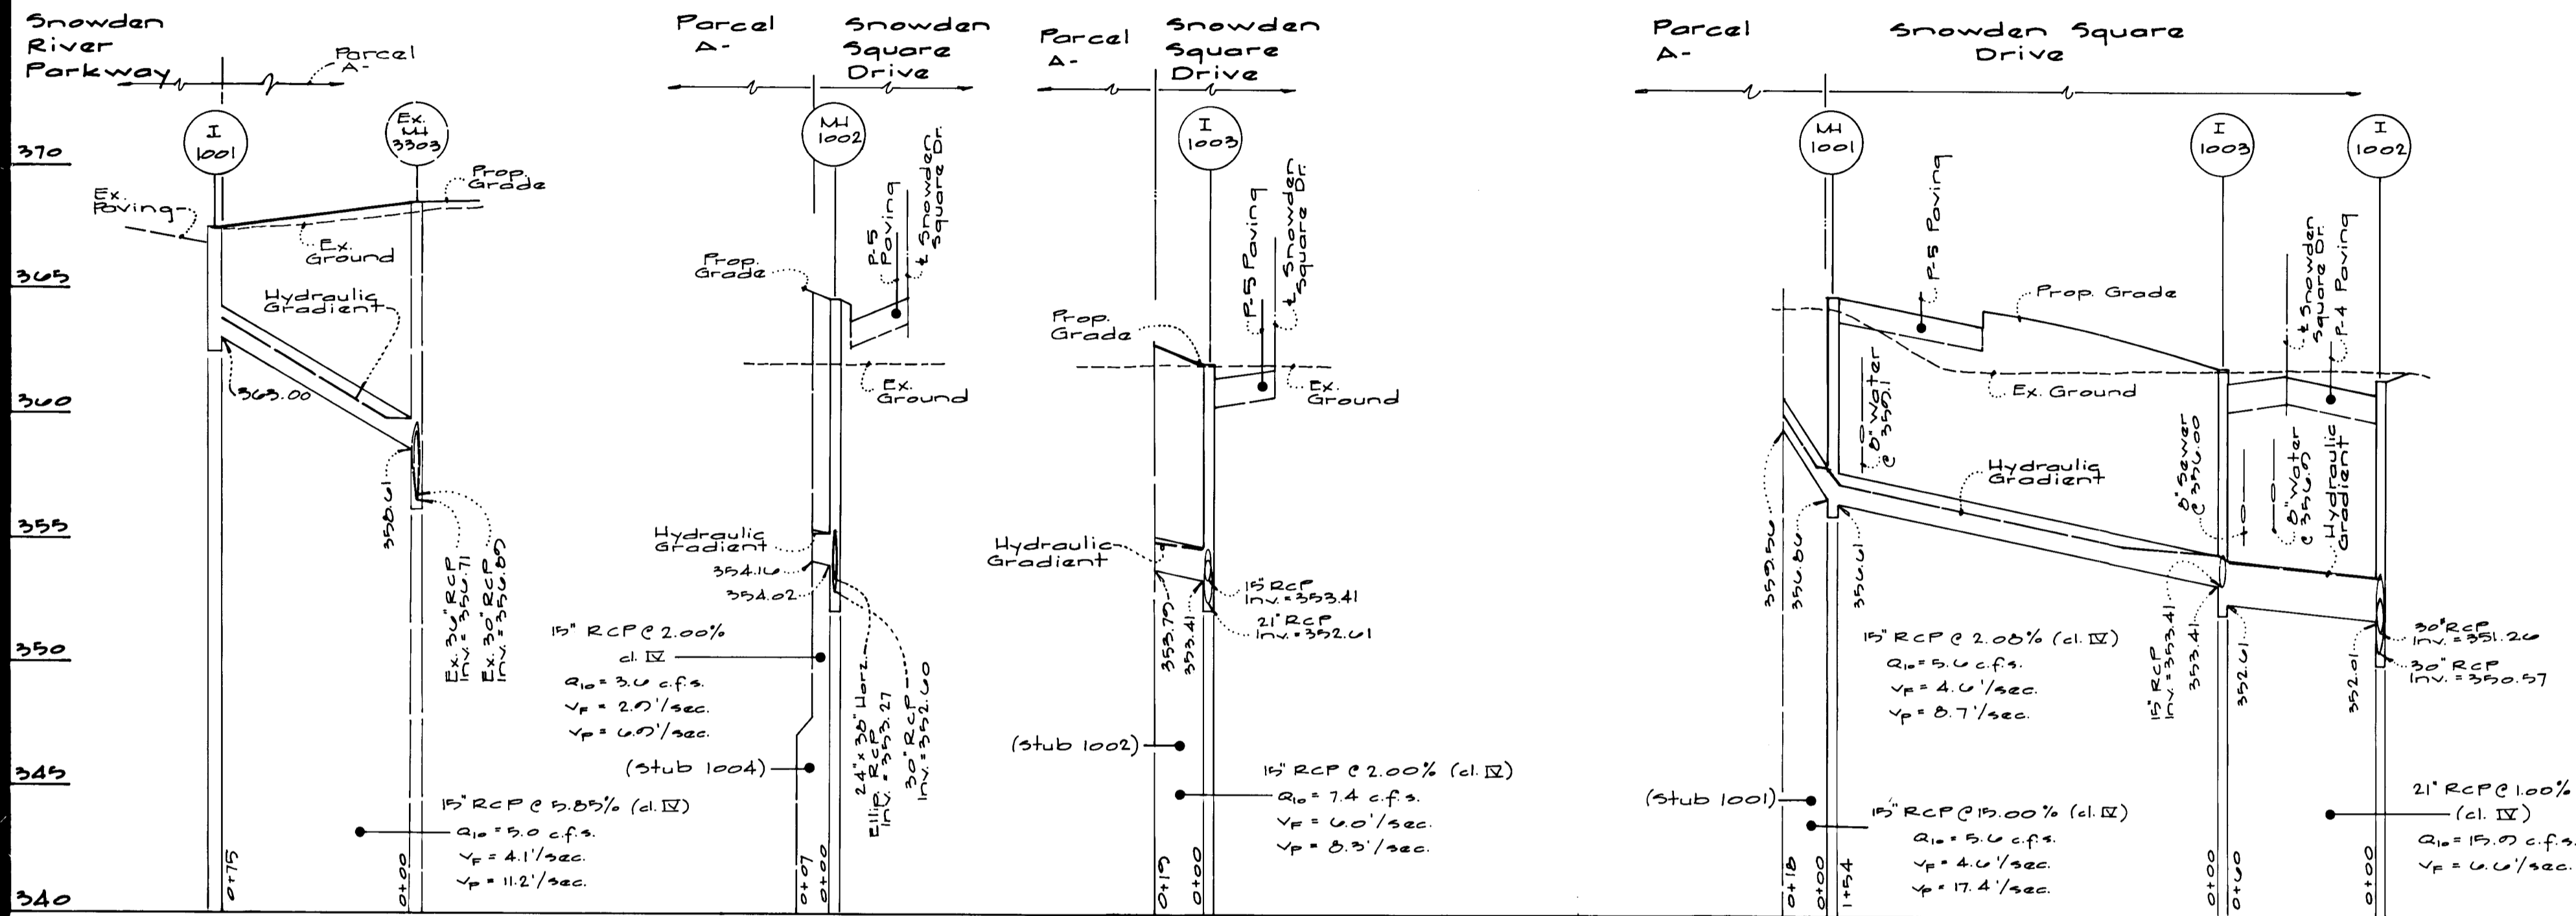 Snowden
River
Parkway
Parcel
A-
I
1001
Ex.
MH
3303
370
365
360
355
350
345
340
Ex.
Paving
Prop.
Grade
Ex.
Ground
Hydraulic
Gradient
363.00
358.61
Ex. 36" RCP
Inv. = 356.71
Ex. 30" RCP
Inv. = 356.89
15" RCP @ 5.85% (cl. IV)
Q10 = 5.0 c.f.s.
VF = 4.1'/sec.
Vp = 11.2'/sec.
0+75
0+00
Parcel
A-
Snowden
Square
Drive
MH
1002
P-5
Paving
℄ Snowden
Square Dr.
Prop.
Grade
Ex.
Ground
Hydraulic
Gradient
354.16
354.02
15" RCP @ 2.00%
cl. IV
Q10 = 3.6 c.f.s.
VF = 2.9'/sec.
Vp = 6.9'/sec.
(Stub 1004)
24" x 38" Horz.
Ellip. RCP
Inv. = 353.27
30" RCP
Inv. = 352.60
0+07
0+00
Parcel
A-
Snowden
Square
Drive
I
1003
P-5 Paving
℄ Snowden
Square Dr.
Prop.
Grade
Ex.
Ground
Hydraulic
Gradient
15" RCP
Inv. = 353.41
21" RCP
Inv. = 352.61
353.79
353.41
(Stub 1002)
15" RCP @ 2.00% (cl. IV)
Q10 = 7.4 c.f.s.
VF = 6.0'/sec.
Vp = 8.3'/sec.
0+19
0+00
Parcel
A-
Snowden Square
Drive
MH
1001
I
1003
I
1002
P-5 Paving
Prop. Grade
℄ Snowden
Square Dr.
P-4 Paving
8" Water
@ 359.1
Ex. Ground
Hydraulic
Gradient
8" Sewer
@ 356.00
8" Water
@ 356.9
Hydraulic
Gradient
359.56
356.86
356.61
15" RCP @ 2.08% (cl. IV)
Q10 = 5.6 c.f.s.
VF = 4.6'/sec.
Vp = 8.7'/sec.
15" RCP
Inv. = 353.41
353.41
352.61
352.01
30" RCP
Inv. = 351.26
30" RCP
Inv. = 350.57
(Stub 1001)
15" RCP @ 15.00% (cl. IV)
Q10 = 5.6 c.f.s.
VF = 4.6'/sec.
Vp = 17.4'/sec.
21" RCP @ 1.00%
(cl. IV)
Q10 = 15.9 c.f.s.
VF = 6.6'/sec.
0+18
0+00
1+54
0+00
0+60
0+00